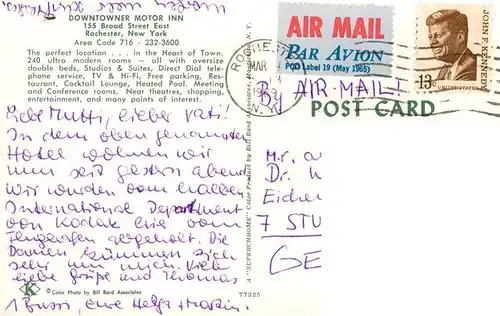 DOWNTOWNER MOTOR INN
155 Broad Street East
Rochester, New York
Area Code 716 - 232-3600
The perfect location . . . in the Heart of Town.
240 ultra modern rooms — all with oversize
double beds, Studios & Suites, Direct Dial tele-
phone service, TV & Hi-Fi, Free parking, Res-
taurant, Cocktail Lounge, Heated Pool. Meeting
and Conference rooms. Near theatres, shopping,
entertainment, and many points of interest.
Liebe Mutti, lieber Vati!
In dem oben genannten
Hotel wohnen wir
nun seit gestern abend
Wir wurden vom halben
International Department
von Kodak hier vom
Flughafen abgeholt. Die
Damen kümmern sich
sehr um mich. Viele
liebe Grüße und Thomas
1 Bussi, Eure Helga + Martin.
K
© Color Photo by Bill Bard Associates
77325
A "SUPERCHROME" Color Product by Bill Bard Associates, Monticello, N. Y.
AIR MAIL
PAR AVION
POD Label 19 (May 1965)
ROCHEST
MAR
N.Y.
JOHN F. KENNEDY
13c
By AIR-MAIL!
POST CARD
Mr. a
Dr. h
Eichen
7 STU
GE